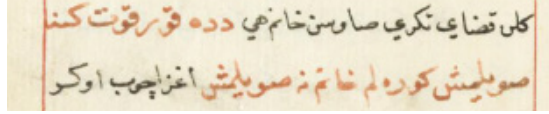 كلن قضايى تكرى صاوسن خانم هى دده قورقوت كندا
صويلمش كوره لم خانم نه صويلمش اغز اچوب اوكر